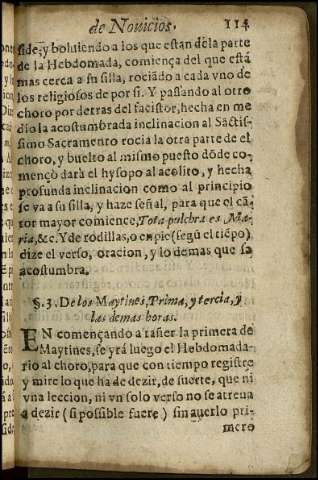 de Novicios. 114
side, y bolviendo a los que estan dẽla parte
de la Hebdomada, comiença del que está
mas cerca a su silla, rociãdo a cada vno de
los religiosos de por si. Y passando al otro
choro por detras del facistor, hecha en me
dio la acostumbrada inclinacion al Sãctis-
simo Sacramento rocia la otra parte de el
choro, y buelto al mismo puesto dõde co-
mençò darà el hysopo al acolito, y hecha
profunda inclinacion como al principio
se va a su silla, y haze señal, para que el cã-
tor mayor comience, Tota pulchra es Ma-
ria, &c. Y de rodillas, o en pie (segũ el tiẽpo)
dize el verso, oracion, y lo demas que se
acostumbra.
§. 3. De los Maytines, Prima, y tercia, y
las demas horas.
EN començando a tañer la primera de
Maytines, se yrá luego el Hebdomada-
rio al choro, para que con tiempo registre
y mire lo que ha de dezir, de suerte, que ni
vna leccion, ni vn solo verso no se atreua
a dezir (si possible fuere) sin auerlo pri-
mero